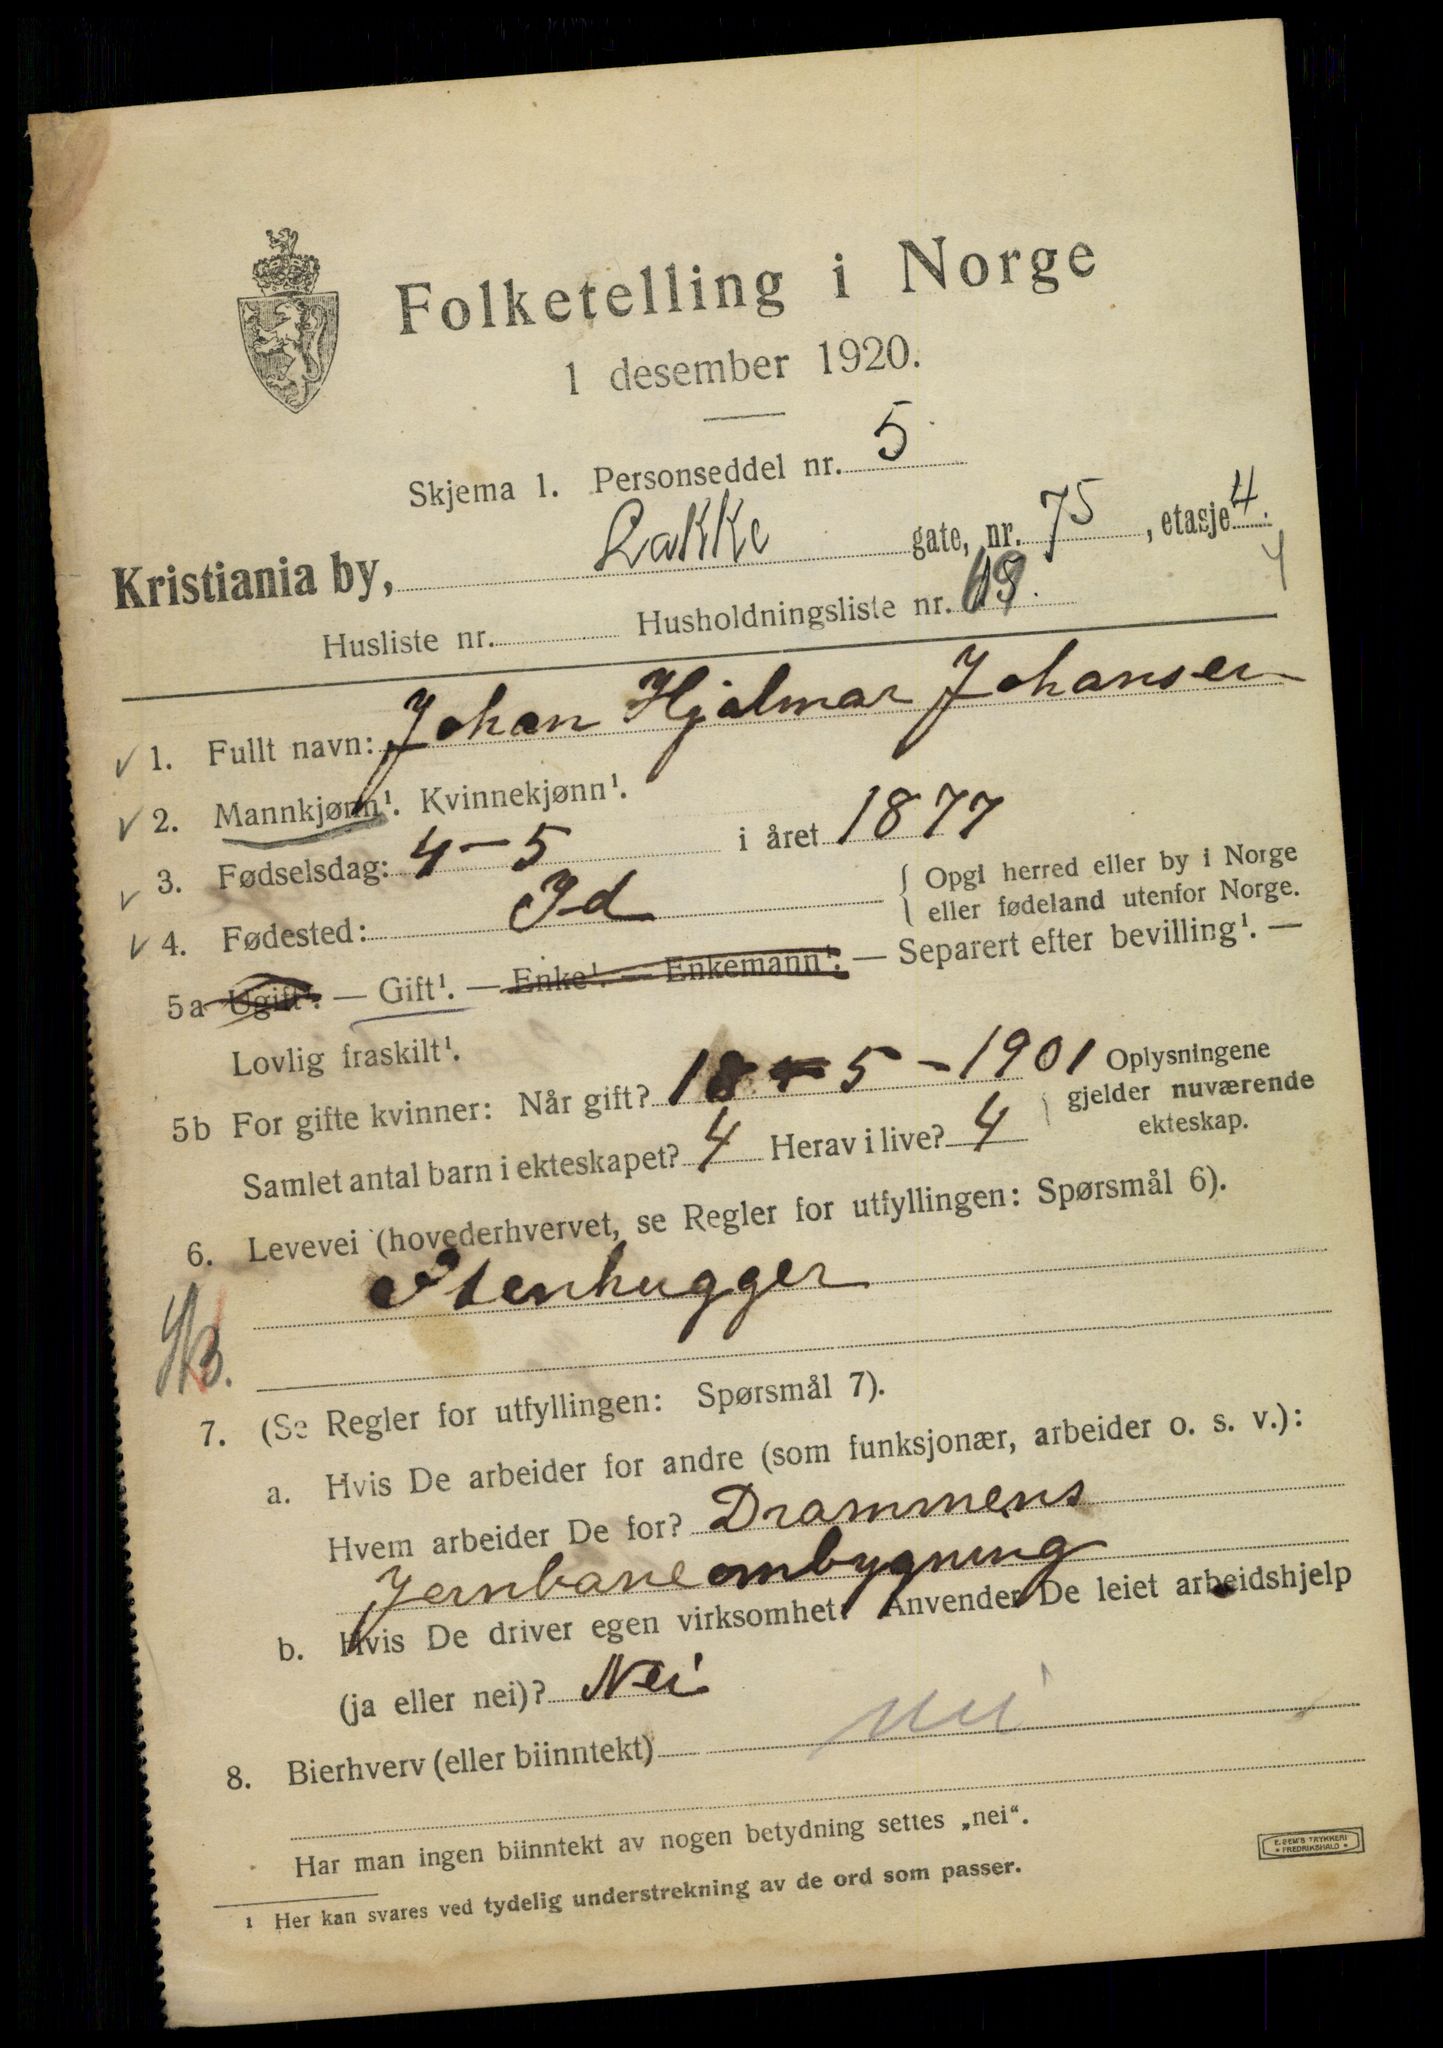 Folketelling i Norge
1 desember 1920.
Skjema 1. Personseddel nr. 5
Kristiania by, Lakke gate, nr. 75, etasje 4.
Husliste nr. Husholdningsliste nr.
4
1. Fullt navn: Johan Hjalmar Johansen
2. Mannkjønn¹. Kvinnekjønn¹.
3. Fødselsdag: 4-5 i året 1877
4. Fødested: Id { Opgl herred eller by i Norge
eller fødeland utenfor Norge.
5a Ugift¹. — Gift¹. — Enke¹. — Enkemann¹. — Separert efter bevilling¹. —
Lovlig fraskilt¹.
5b For gifte kvinner: Når gift? 18-5-1901 Oplysningene
gjelder nuværende
ekteskap.
Samlet antal barn i ekteskapet? 4 Herav i live? 4
6. Levevei (hovederhvervet, se Regler for utfyllingen: Spørsmål 6).
Stenhugger
7. (Se Regler for utfyllingen: Spørsmål 7).
a. Hvis De arbeider for andre (som funksjonær, arbeider o. s. v.):
Hvem arbeider De for? Drammens
Jernbane ombygning
b. Hvis De driver egen virksomhet: Anvender De leiet arbeidshjelp
(ja eller nei)? Nei
8. Bierhverv (eller biinntekt) nei
Har man ingen biinntekt av nogen betydning settes „nei“.
¹ Her kan svares ved tydelig understrekning av de ord som passer.
E. SEM'S TRYKKERI
* FREDRIKSHALD *